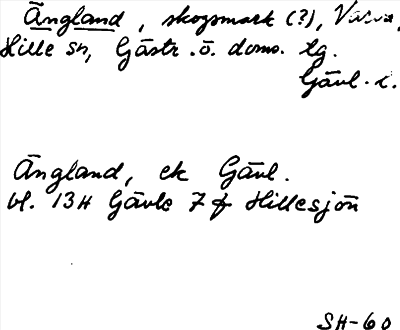 Ängland, skogsmark (?), Valva,
Hille sn, Gästr. ö. doms. tg.
Gävl. l.
Ängland, ek Gävl.
bl. 13H Gävle 7 f Hillesjön
SH-60